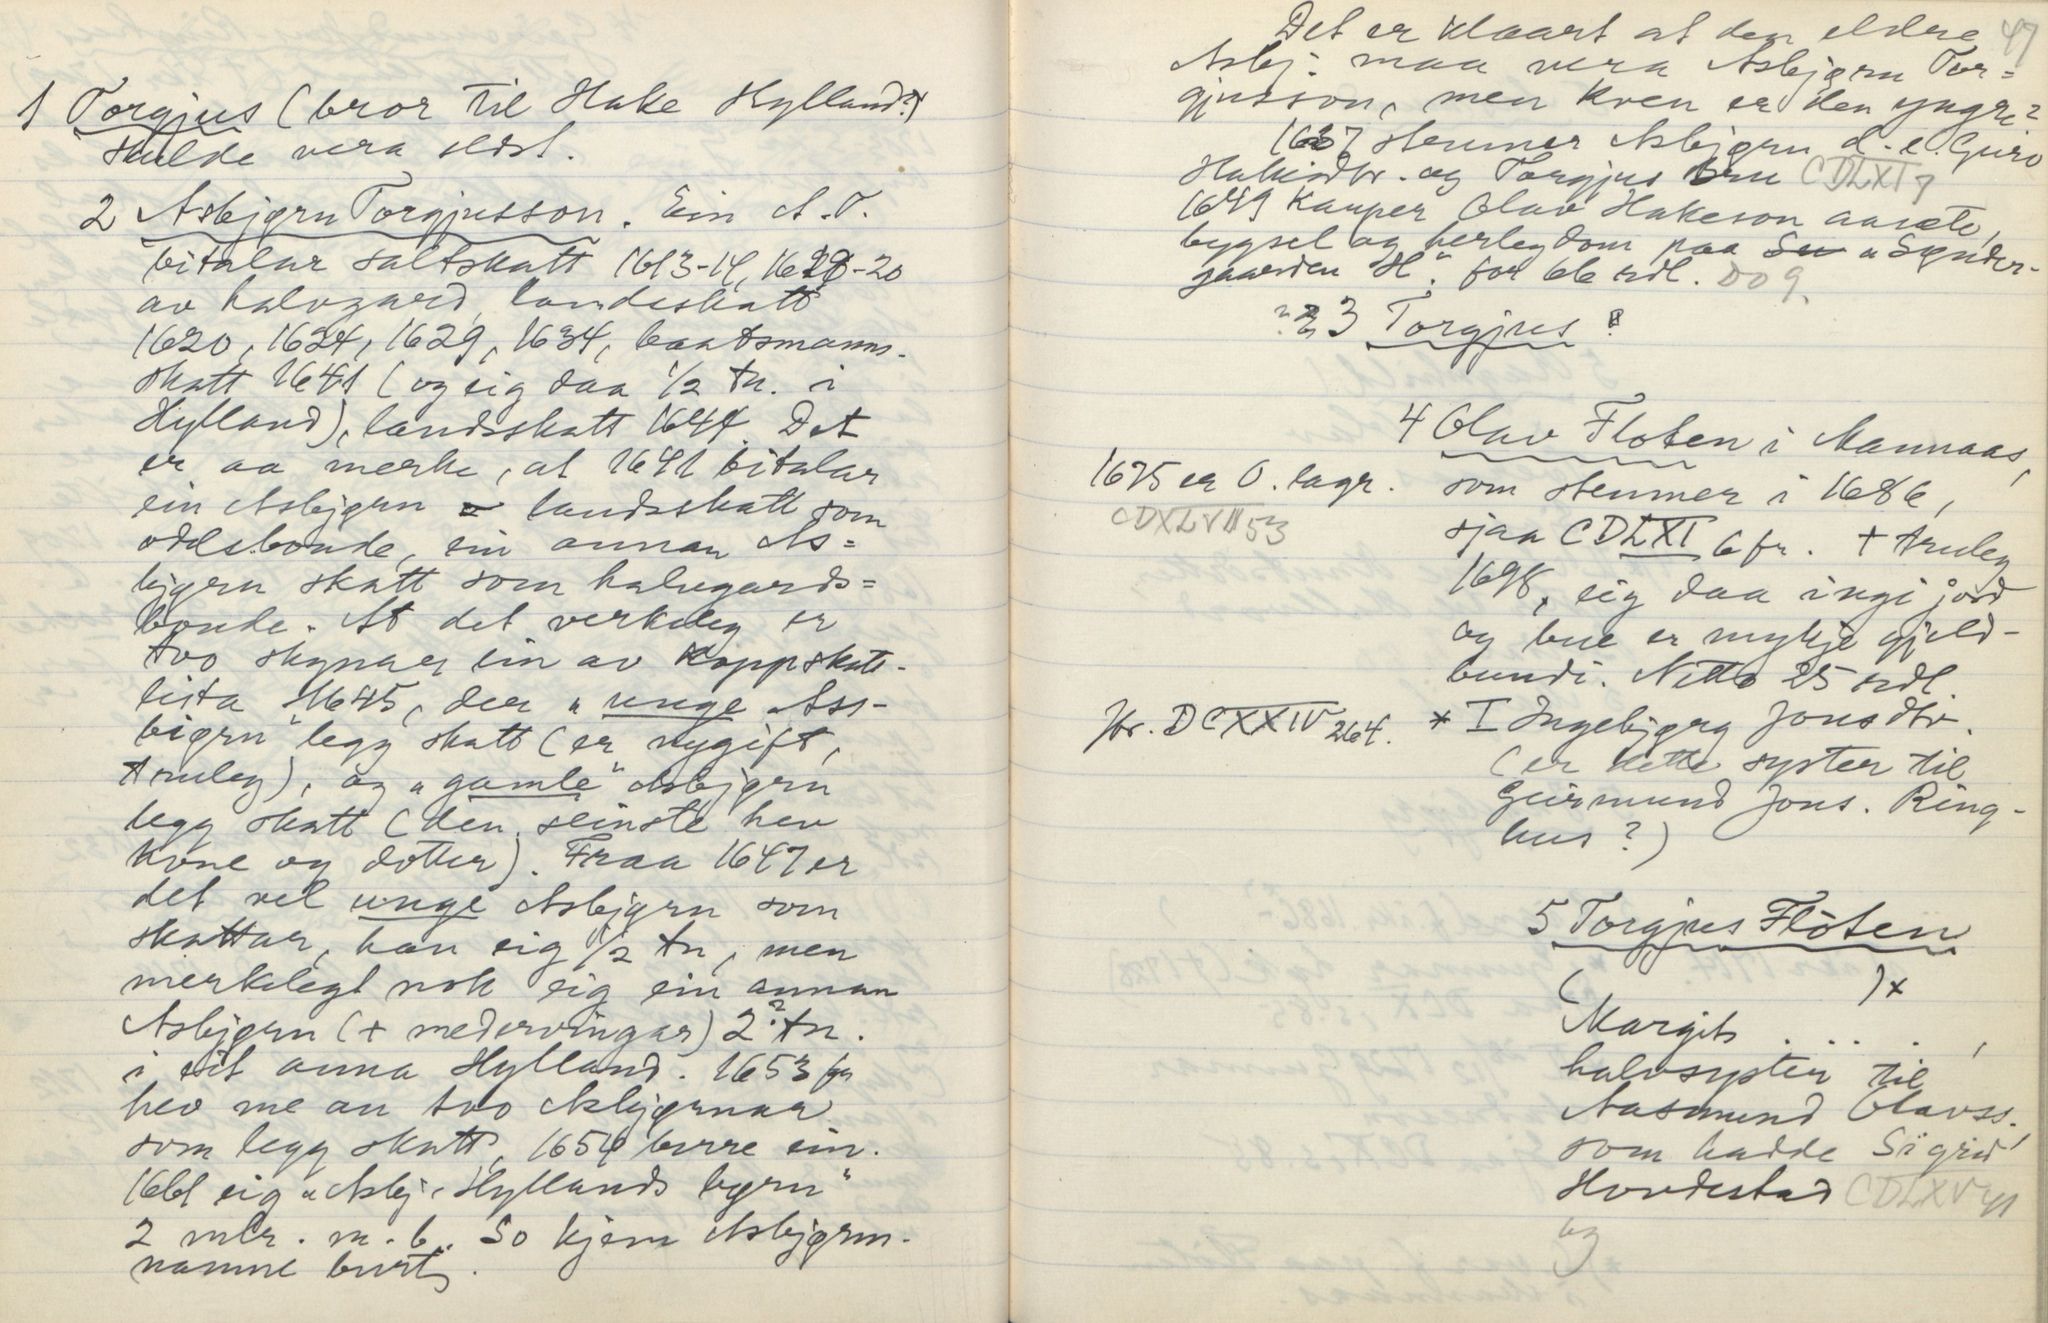 1 Torgjus (bror til Hake Hylland?)
skulde vera eldst.
2 Asbjørn Torgjusson. Ein A.T.
bitalar saltskatt 1613-14, 1618-20
av halvgard, landeskatt
1620, 1624, 1629, 1634, baatsmanns-
skatt 1641 (og eig daa 1/2 tn. i
Hylland), landsskatt 1644. Det
er aa merke, at 1641 bitalar
ein Asbjørn landsskatt som
odelsbonde, ein annan As=
bjørn skatt som halvgards=
bonde. At det verkeleg er
tvo skynar ein av Koppskatt-
lista 1645, der "unge Ass-
biørn" legg skatt (er nygift,
truleg), og "gamle" Asbjørn
legg skatt (den seinste hev
kone og dotter). Fraa 1647 er
det vel unge Asbjørn som
skattar, han eig 1/2 tn, men
merkelegt nok eig ein annan
Asbjørn (+ medervingar) 2? tn.
i eit anna Hylland. 1653 fr
hev me au tvo Asbjørnar
som legg skatt, 1654 berre ein.
1661 eig "Asbj. Hyllands børn"
2 mlr. m. b. So kjem Asbjørn-
namne burt.
47
Det er klaart at den eldre
Asbj. maa vera Asbjørn Tor=
gjusson, men kven er den yngre?
1637 stemner Asbjørn d. e. Guro
Hakisdtr. og Torgjus Bru CDLXI 7
1649 kauper Olav Hakeson aasæte,
bygsel og herlegdom paa "Sønder-
gaarden H". for 66 rdl. DO 9.
?3 Torgjus?
4 Olav Floten i Mannaas,
1675 er O. lagr.
CDXLVIII 53
som stemner i 1686,
sjaa CDLXI 6 fr. + truleg
1698, eig daa ingi jord
og bue er mykje gjeld-
bundi. Netto 25 rdl.
Jfr. DCXXIV 264.
* I Ingebjørg Jonsdtr.
(er dette syster til
Geirmund Jons. Ring-
hus?)
5 Torgjus Flöten
( )x
Margit . . . . ,
halvsyster til
Aasmund Olavss.,
som hadde Sigrid
Hovdestad CDLXV 41
og